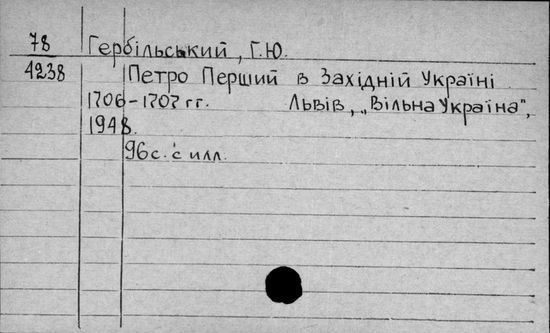 78 Гербільський, Г.Ю.
4238 Петро Перший в Західній Україні
1706-1707 гг. Львів, „Вільна Україна",
1948.
96с. с илл.